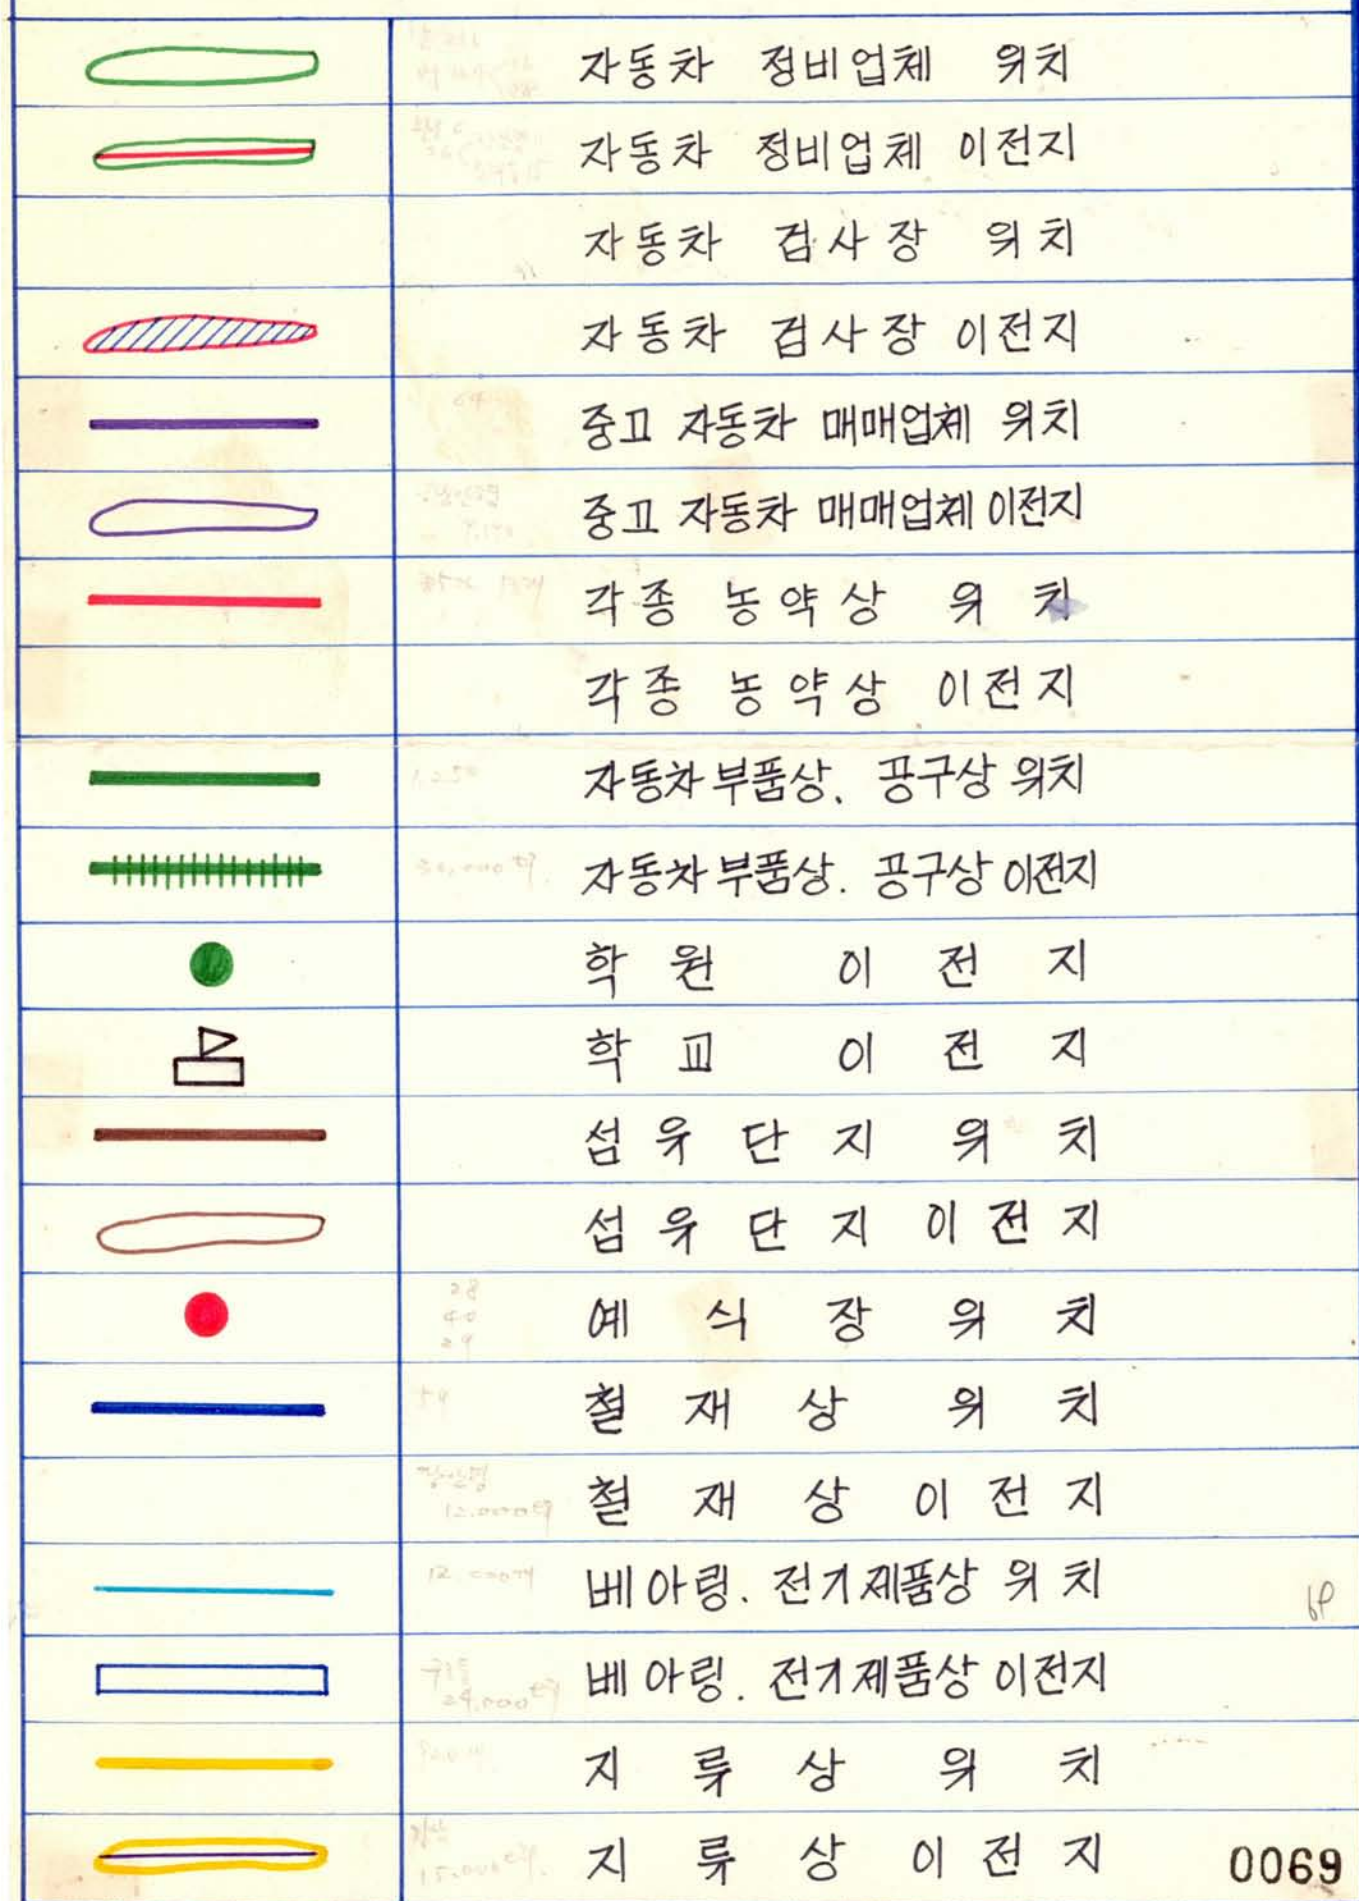 자동차 정비업체 위치
자동차 정비업체 이전지
자동차 검사장 위치
자동차 검사장 이전지
중고 자동차 매매업체 위치
중고 자동차 매매업체 이전지
각종 농약상 위치
각종 농약상 이전지
자동차부품상. 공구상 위치
자동차부품상. 공구상 이전지
학원 이전지
학교 이전지
섬유단지 위치
섬유단지 이전지
예식장 위치
철재상 위치
철재상 이전지
베아링. 전기제품상 위치
베아링. 전기제품상 이전지
지류상 위치
지류상 이전지
0069